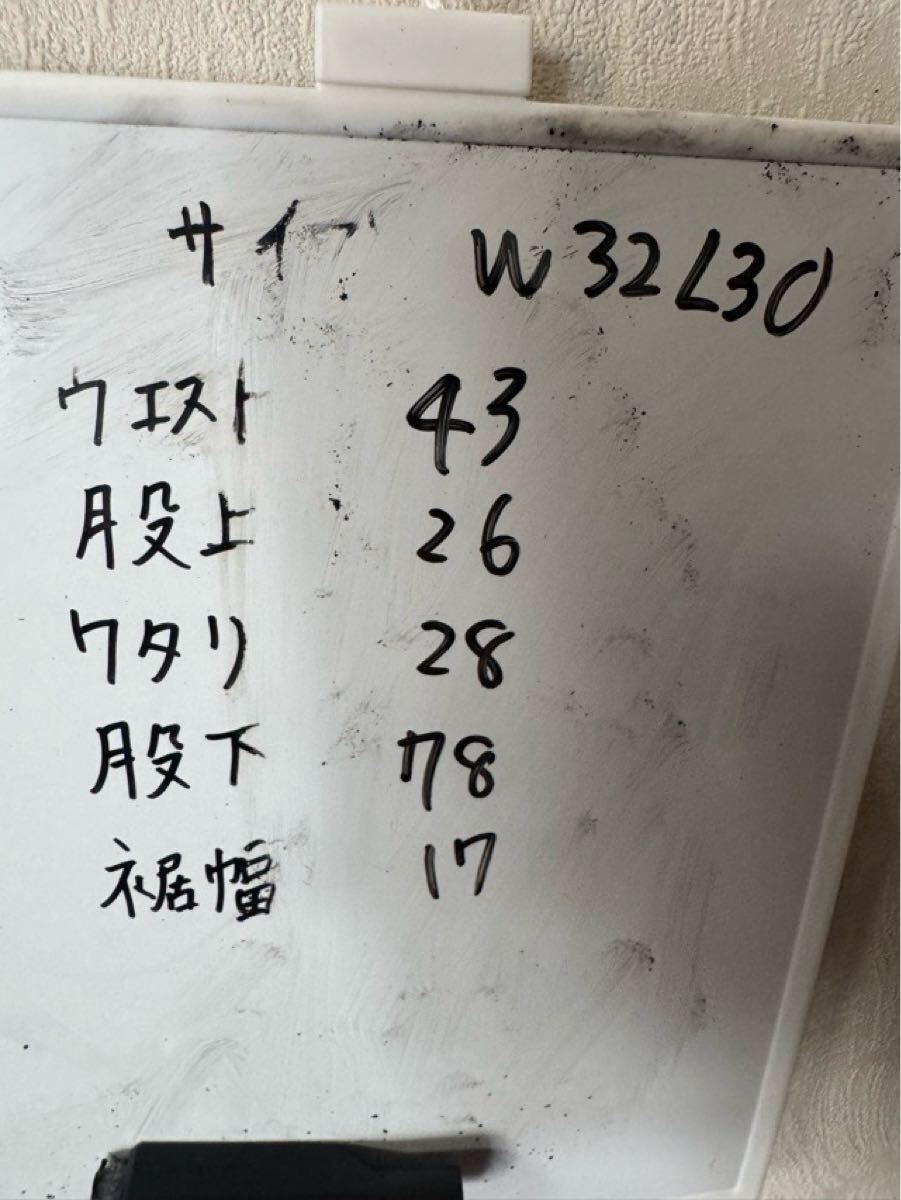 サイズ W32L30
ウエスト 43
股上 26
ワタリ 28
股下 78
裾幅 17